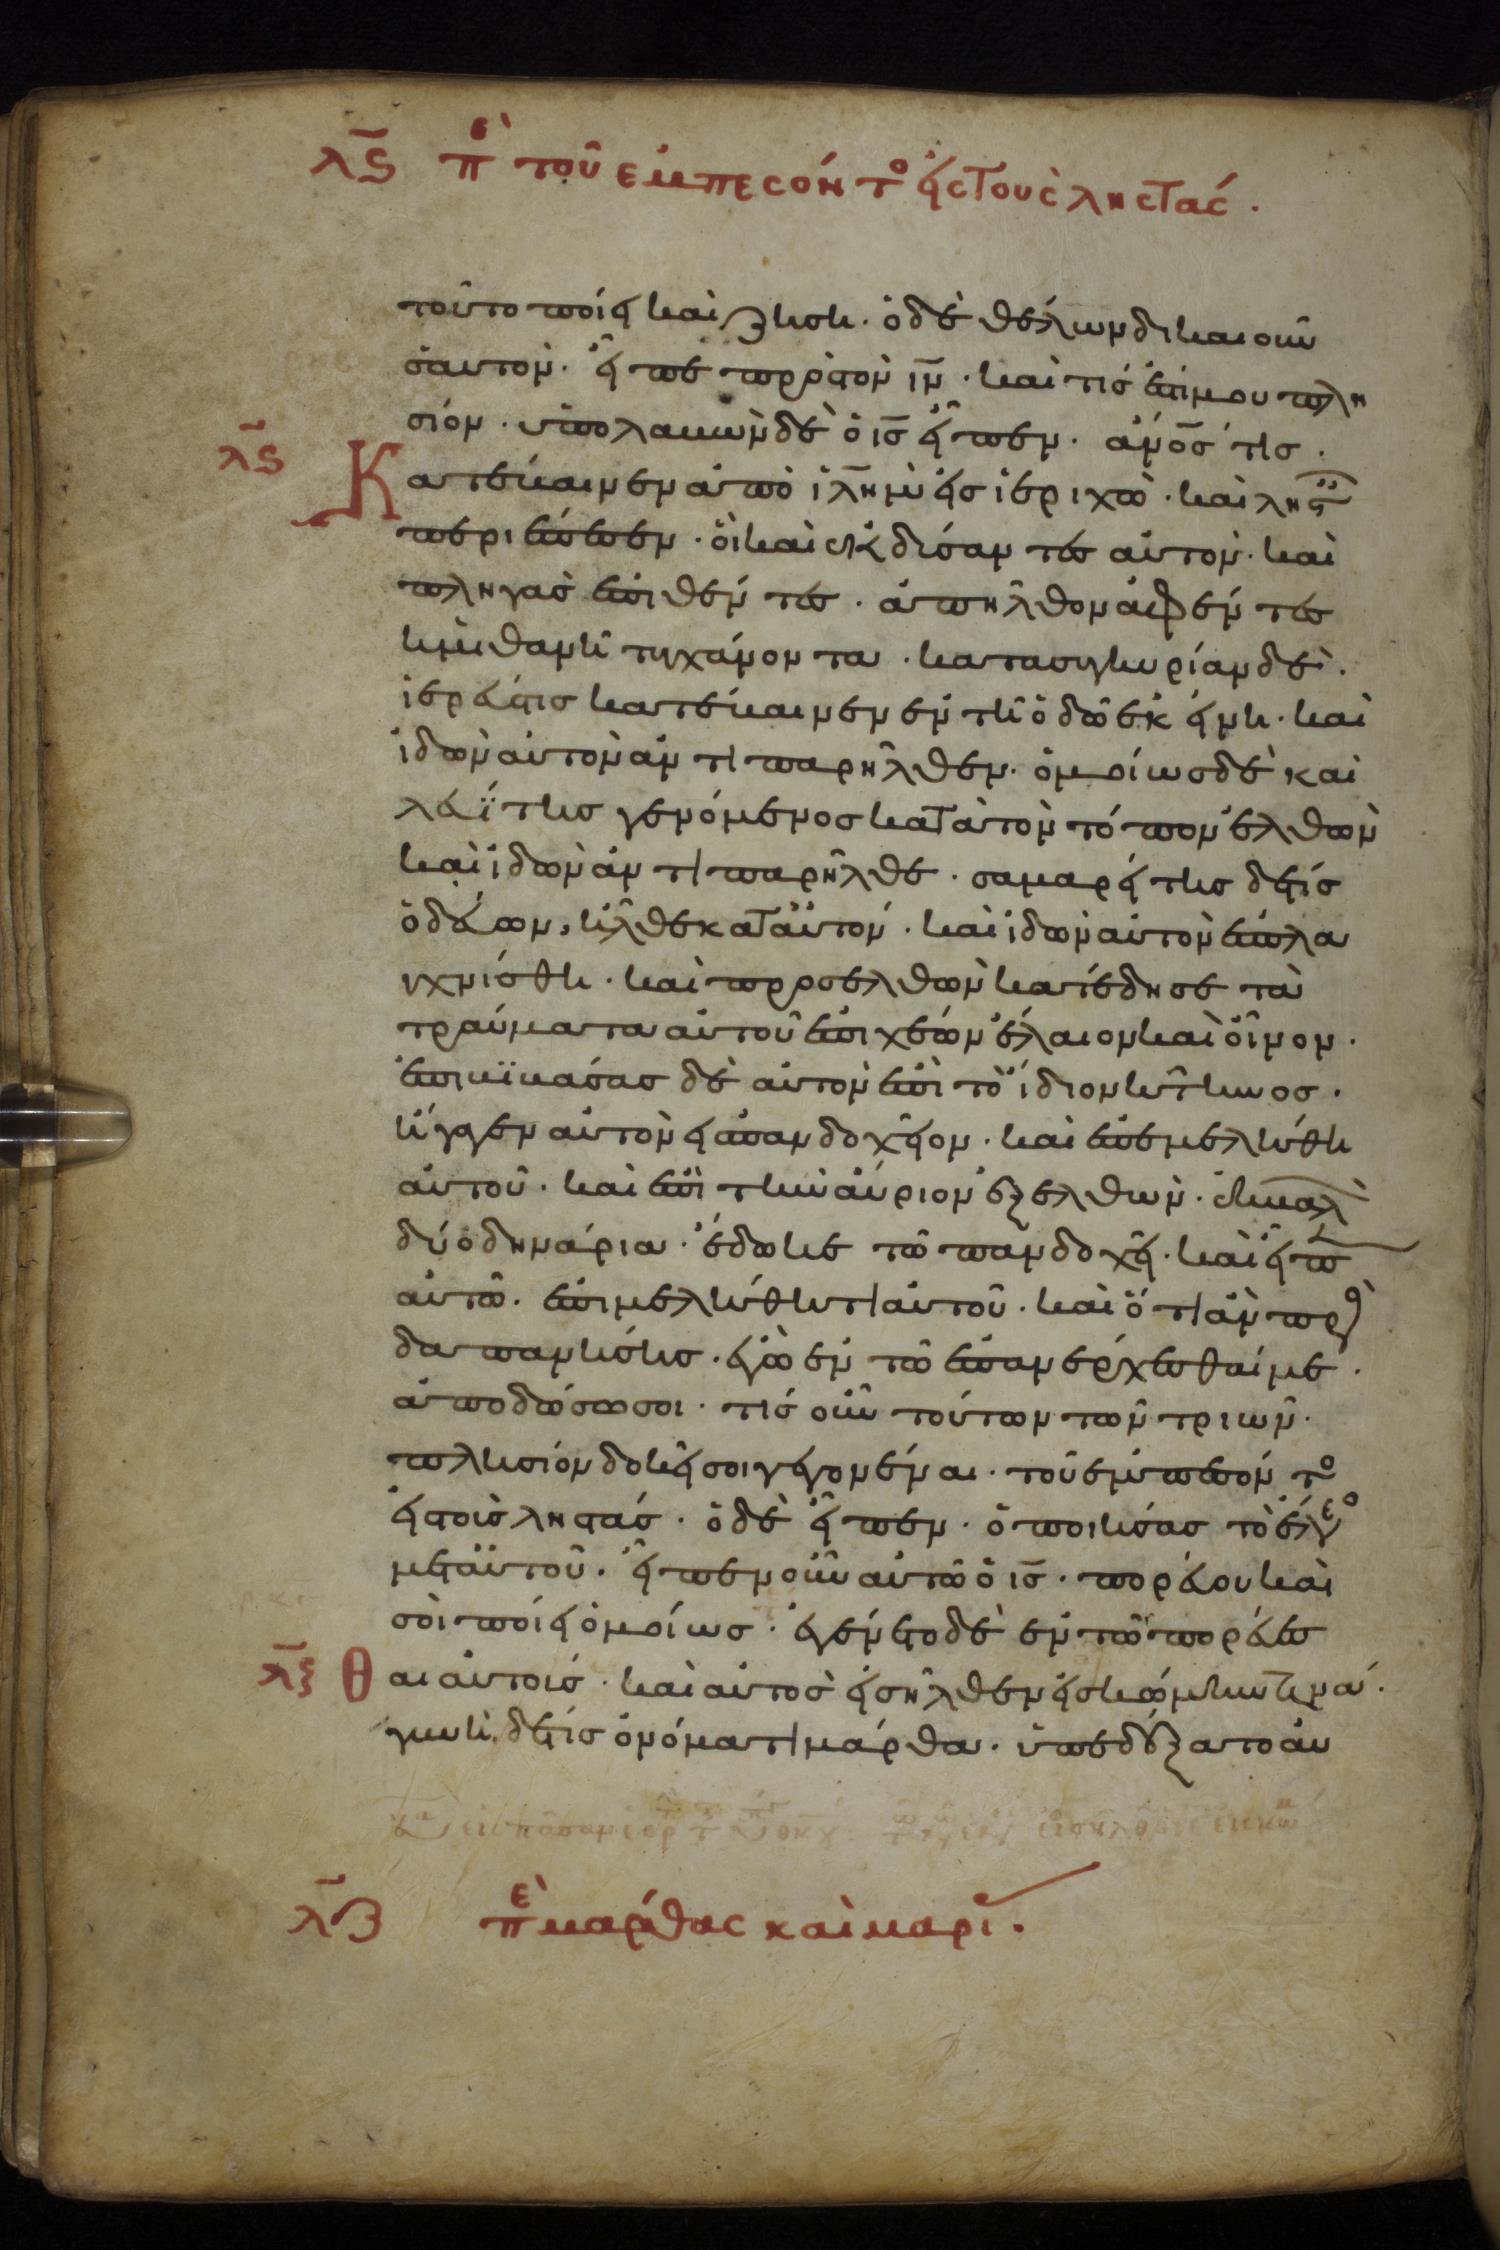 λ̅ς πὲ τοῦ εμπεσόν το ἐις τους ληστασ.
τοῦτο ποίει καὶ ζήση. ὁ δὲ θέλων δικαιοῦν
ἑαυτὸν. εἶπε πρὸς τὸν ι̅ν̅. καὶ τίς ἐστί μου πλη
σίον. ὑπολαβὼν δὲ ὁ ι̅ς̅ εἶπεν. ἄνο̅ς̅ τις.
λ̅ς Κατέβαινεν ἀπὸ ἱλ̅ημ̀ εἰς ἱεριχὼ. καὶ λησταῖς
περιέπεσεν. ὃι καὶ ἐκδύσαντες αὐτὸν. καὶ
πληγὰς ἐπιθέντες. ἀπῆλθον ἀφέντες
ἡμιθανῆ τυχάνοντα. κατασυγκυρίαν δὲ.
ἱερεύς τις κατέβαινεν ἐν τῆ ὁδῶ ἐκείνη. καὶ
ἰδὼν αὐτὸν ἀντιπαρῆλθεν. ὁμοίως δὲ καὶ
λευΐτης γενόμενος κατὰ τὸν τόπον ἐλθὼν
καὶ ἰδὼν ἀντιπαρῆλθε. σαμαρείτης δέ τις
ὁδεύων, ἦλθε κατ αὐτόν. καὶ ἰδὼν αὐτὸν ἐσπλα
γχνίσθη. καὶ προσελθὼν κατέδησε τὰ
τραύματα αὐτοῦ ἐπιχέων ἔλαιον καὶ οἶνον.
ἐπιβϊβάσας δὲ αὐτὸν ἐπὶ τὸ ἴδιον κτῆνος.
ἤγαγεν αὐτὸν εἰς πανδοχεῖον. καὶ ἐπεμελήθη
αὐτοῦ. καὶ ἐπὶ τὴν αὔριον ἐξελθὼν. ἐκβαλὼ
δύο δηνάρια. ἔδωκε τῶ πανδοχεῖ. καὶ εἶπ
αὐτῶ. ἐπιμελήθητι αὐτοῦ. καὶ ὅτι ἂν προς
δαπανήσης. ἐγὼ ἐν τῶ ἐπανέρχεσθαί με.
ἀποδώσω σοι. τίς οὖν τούτων τῶν τριῶν.
πλησίον δοκεῖ σοι γεγονέναι. τοῦ ἐμπεσόν το
εἰς τοὺς ληστάς. ὁ δὲ εἶπεν. ὁ ποιήσας τὸ ἔλεο
μετ αὐτοῦ. εἶπεν οὖν αὐτῶ ὁ ι̅ς̅. πορεύου καὶ
σὺ ποίει ὁμοίως. ἐγένετο δὲ ἐν τῶ πορεύεσ
λ̅ζ θαι αὐτοὺς. καὶ αὐτὸς εἰσῆλθεν εἰς κώμην τινά.
γυνὴ δέ τις ὀνόματι μάρθα. ὑπεδέξατο αὐ
λ̅ζ πὲ μάρθας καὶ μαρί.